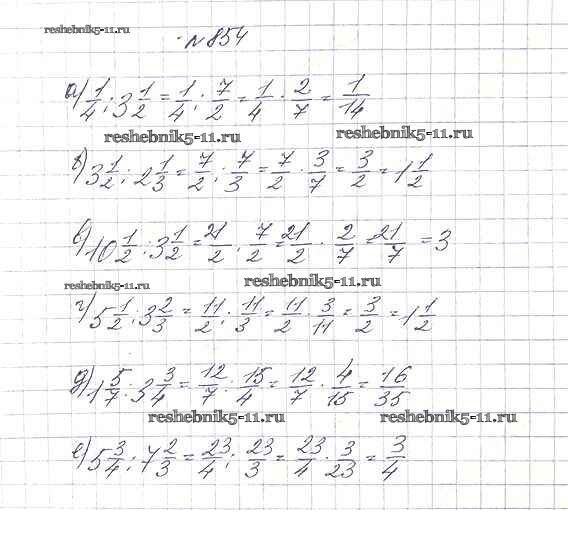 reshebnik5-11.ru
№854
а) 1/4 : 3 1/2 = 1/4 : 7/2 = 1/4 · 2/7 = 1/14
reshebnik5-11.ru reshebnik5-11.ru
б) 3 1/2 : 2 1/3 = 7/2 : 7/3 = 7/2 · 3/7 = 3/2 = 1 1/2
в) 10 1/2 : 3 1/2 = 21/2 : 7/2 = 21/2 · 2/7 = 21/7 = 3
reshebnik5-11.ru reshebnik5-11.ru
г) 5 1/2 : 3 2/3 = 11/2 : 11/3 = 11/2 · 3/11 = 3/2 = 1 1/2
д) 1 5/7 : 3 3/4 = 12/7 : 15/4 = 12/7 · 4/15 = 16/35
reshebnik5-11.ru reshebnik5-11.ru
е) 5 3/4 : 7 2/3 = 23/4 : 23/3 = 23/4 · 3/23 = 3/4